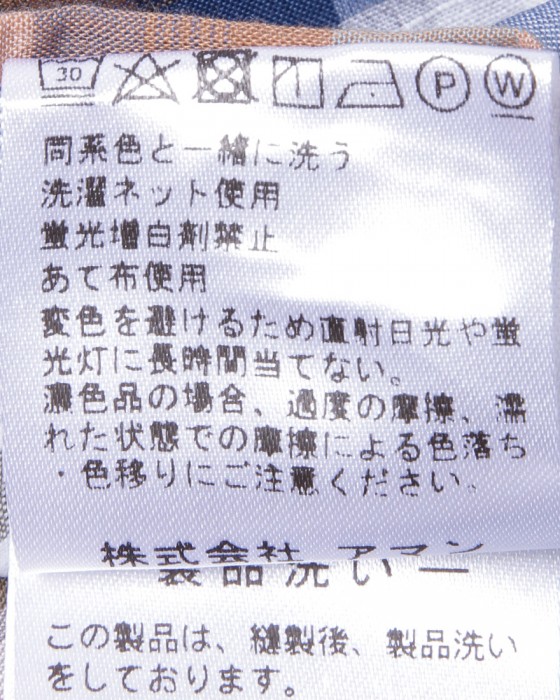 30
P
W
同系色と一緒に洗う
洗濯ネット使用
蛍光増白剤禁止
あて布使用
変色を避けるため直射日光や蛍
光灯に長時間当てない。
濃色品の場合、過度の摩擦、濡
れた状態での摩擦による色落ち
・色移りにご注意ください。
株式会社 アマン
製品洗い
この製品は、縫製後、製品洗い
をしております。